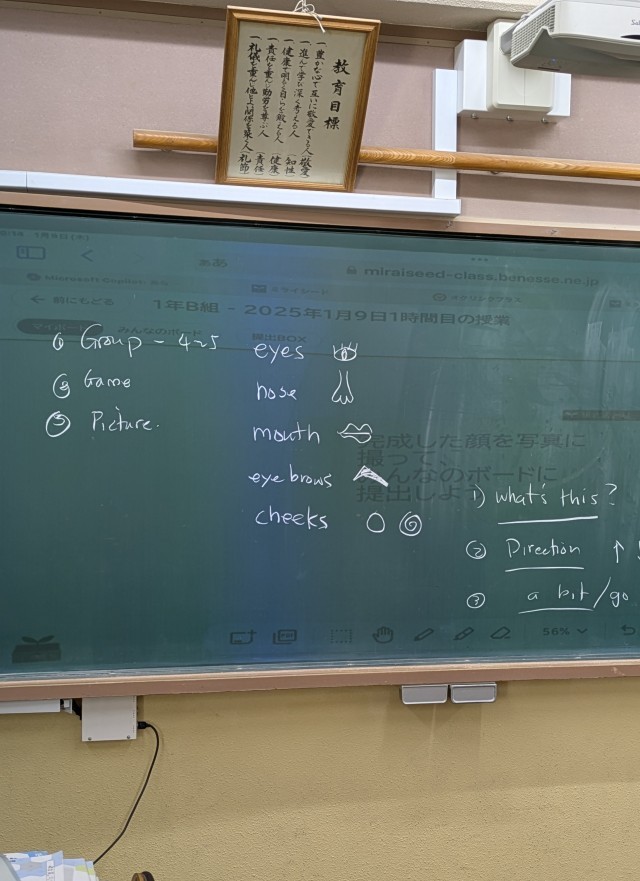 教育目標
一 豊かな心で互いに敬愛できる人（敬愛
一 進んで学び深く考える人（知性
一 健康で明るく自らを鍛える人（健康
一 責任を重んじ勤労を尊ぶ人（責任
一 礼儀を重んじ他と
人（礼節）
1月9日(木)
ああ
miraiseed-class.benesse.ne.jp
Microsoft Copilot:
ミライシード
← 前にもどる
1年B組 - 2025年1月9日1時間目の授業
マイボード
みんなのボード
提出BOX
① Group - 4~5
② Game
③ Picture.
eyes
nose
mouth
eyebrows
cheeks
完成した顔を写真に
撮って
みんなのボードに
提出しよう
1) what's this?
② Direction ↑
③ a bit/go
56%